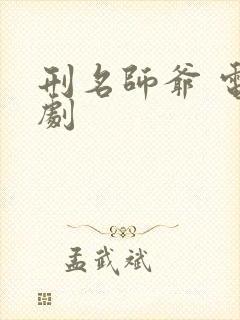 刑名師爺 電
劇
孟武斌